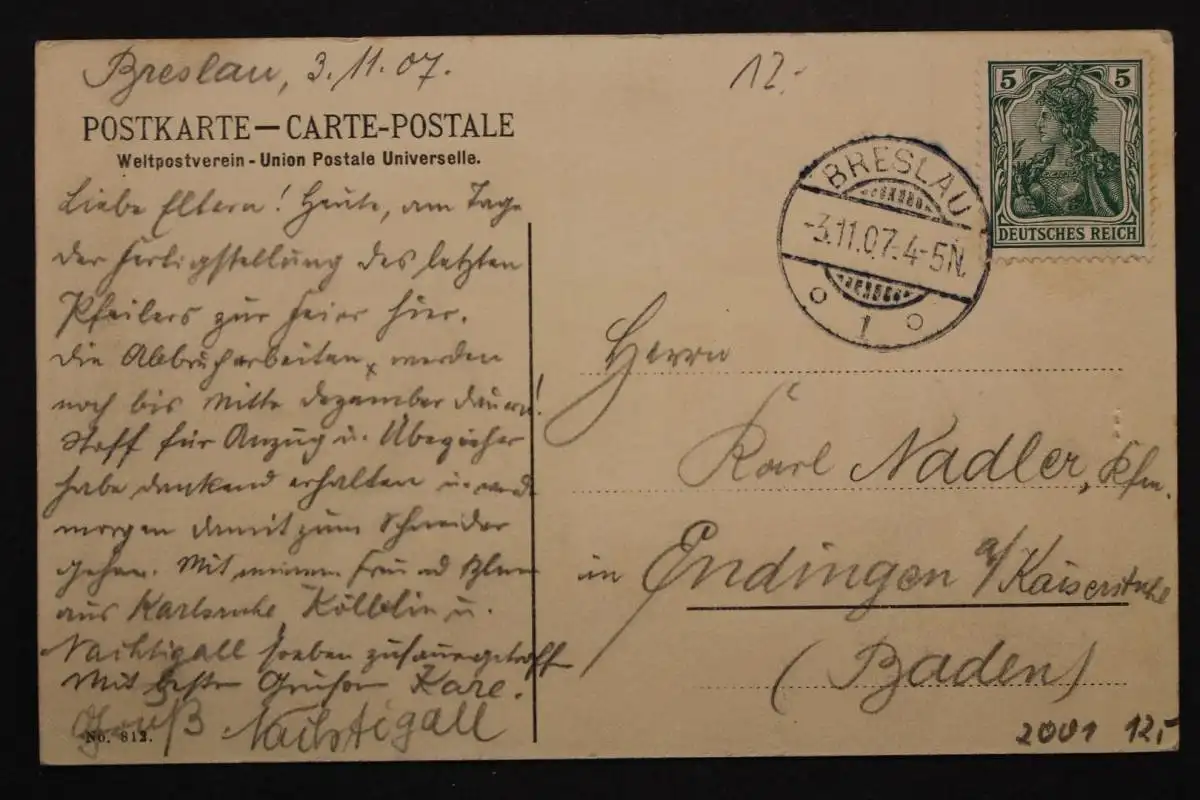 Breslau, 3.11.07.
12.-
POSTKARTE — CARTE-POSTALE
Weltpostverein - Union Postale Universelle.
5 5
DEUTSCHES REICH
BRESLAU
-3.11.07.4-5N.
1
Liebe Eltern! Heute, am Tage
der Fertigstellung des letzten
Pfeilers zur Feier hier.
Die Abbrucharbeiten werden
noch bis Mitte Dezember dauern!
Stoff für Anzug u. Überzieher
habe dankend erhalten u. werde
morgen damit zum Schneider
gehen. Mit meinen
aus Karlsruhe, Kölblin u.
Nachtigall soeben zusammengetroff
Mit besten Grüßen Karl.
Gruß Nachtigall
No. 812.
Herrn
Karl Nadler, Kfm.
in Endingen a/Kaiserstuhl
(Baden)
2001 12,-